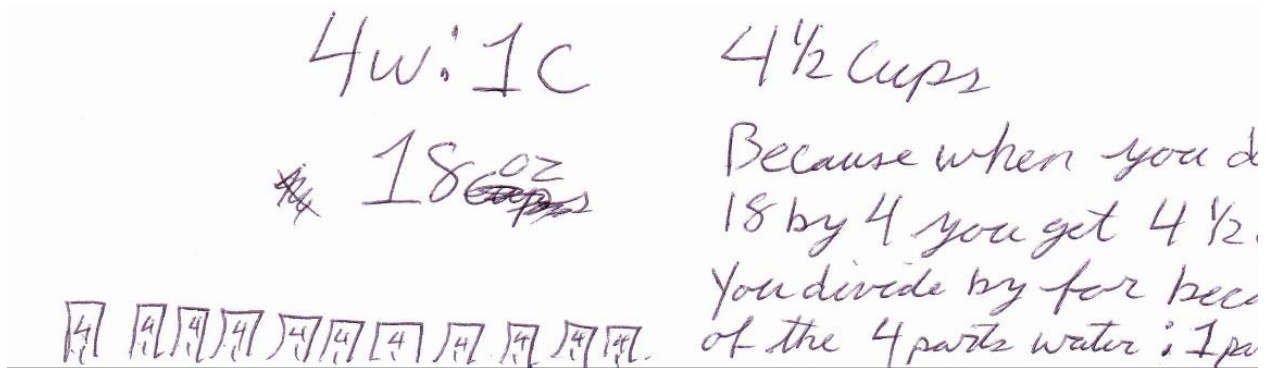 4w:1c
18 oz
4 4 4 4 4 4 4 4 4 4 4
4½ Cups
Because when you d
18 by 4 you get 4½.
You divide by for beca
of the 4 parts water : 1 pa